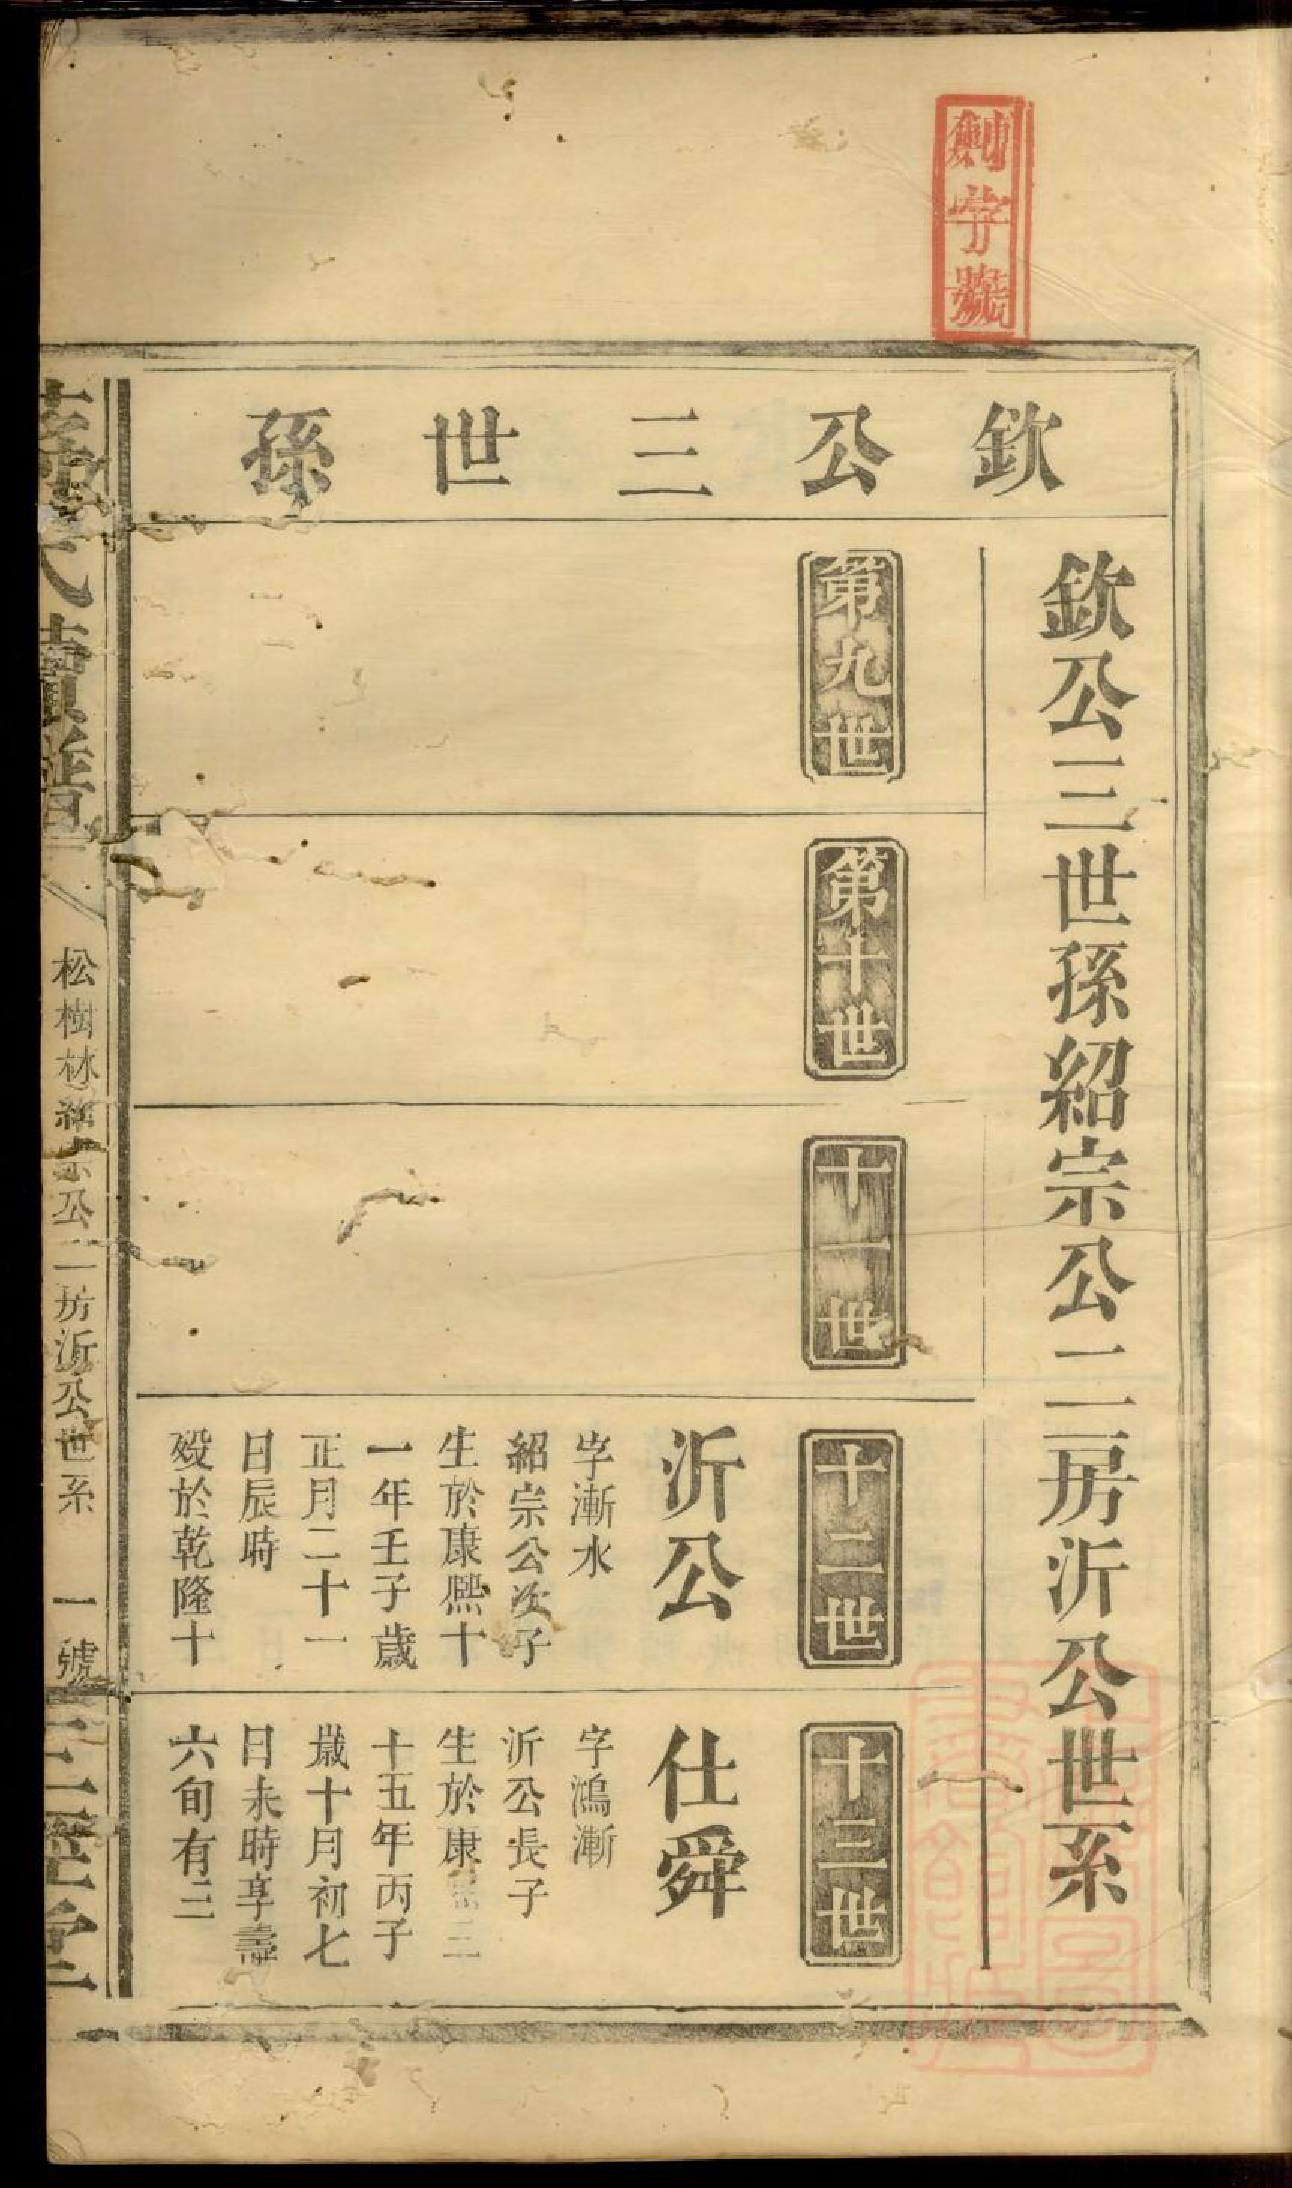 欽公三世孫
欽公三世孫紹宗公二房沂公世系
第九世
第十世
十一世
十二世
沂公
字漸水
紹宗公次子
生於康熙十
一年壬子歲
正月二十一
日辰時
歿於乾隆十
十三世
仕舜
字鴻漸
沂公長子
生於康熙三
十五年丙子
歲十月初七
日未時享壽
六旬有三
氏續譜
松樹林紹宗公二房沂公世系
一號